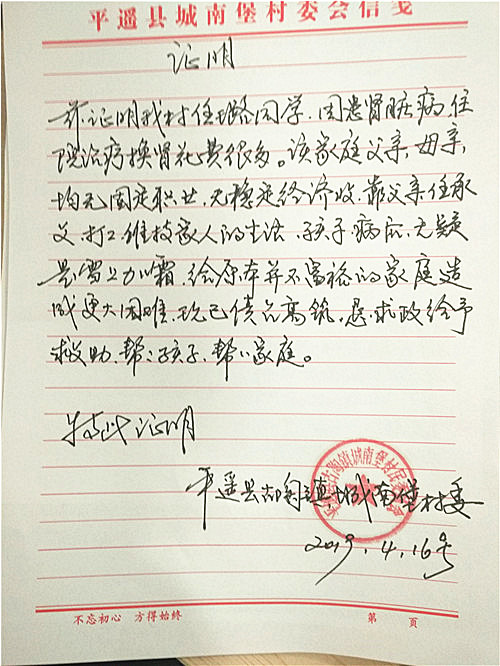 平遥县城南堡村委会信笺
证明
兹证明我村任璐同学,因患肾脏病,住
院治疗换肾花费很多。该家庭父亲,母亲,
均无固定职业,无稳定经济收,靠父亲任承
义,打工维持家人的生活,孩子病后,无疑
是雪上加霜,给原本并不富裕的家庭造
成更大困难,现已债台高筑,恳求政给予
救助,帮帮孩子,帮帮家庭。
特此证明
平遥县古陶镇城南堡村委
2019.4.16号
不忘初心 方得始终
第 页